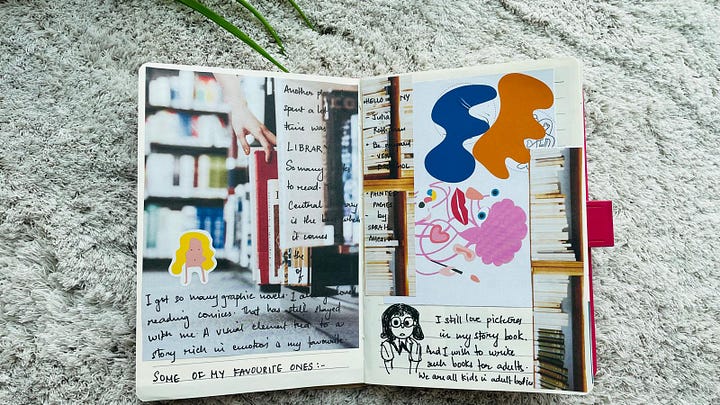 Another
spent a lot
time was
LIBRARY
So many
to read.
Central
is the best when
it comes
the
of
I got so many graphic novels. I
reading comics. That has still stayed
with me. A visual element tied to a
story rich in emotion is my favourite
SOME OF MY FAVOURITE ONES:-
HELLO NY
- Julia
Rothman
- Be
- PAINTED
PAGES
by
SARAH
I still love pictures
in my story book.
And I wish to write
such books for adults.
We are all kids in adult bodies